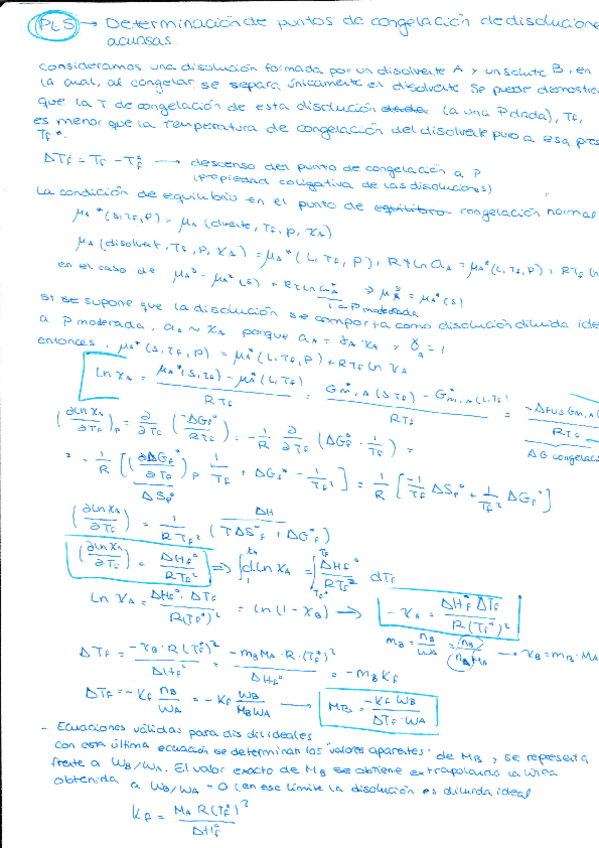 PL5 → Determinación de puntos de congelación de disolucione
acuosas
consideramos una disolución formada por un disolvente A y un soluto B, en
la cual, al congelar se separa únicamente el disolvente. Se puede demostra
que la T de congelación de esta disolución (a una P dada), Tf,
es menor que la Temperatura de congelación del disolvente puro a esa pres
Tf*.
ΔTf = Tf - Tf* → descenso del punto de congelación a P
(propiedad coligativa de las disoluciones)
La condición de equilibrio en el punto de equilibrio congelación normal
μA*(s, Tf, P) = μA (disolvente, Tf, P, xA)
μA (disolvent, Tf, P, xA) = μA*(L, Tf, P) + RT ln aA = μA*(L, Tf, P) + RTf ln
en el caso de
P moderada
si se supone que la disolución se comporta como disolución diluida ide
a P moderada, aA ≈ xA porque aA = γA xA = γA = 1
entonces. μA*(s, Tf, P) = μA*(L, Tf, P) + RTf ln xA
ln xA = μA*(s, Tf) - μA*(L, Tf) / RTf = G*m,A (s, Tf) - G*m,A (L, Tf) / RTf = -Δfus Gm,A( / RTf
ΔG congelació
(∂ln xA/∂Tf)P = ∂/∂Tf (-ΔGf°/RTf) = -1/R ∂/∂Tf (ΔGf° · 1/Tf) =
= -1/R [(∂ΔGf°/∂Tf)P 1/Tf + ΔGf° - 1/Tf²] = 1/R [-1/Tf ΔSf° + 1/Tf² ΔGf°]
ΔSf°
ΔH
(∂ln xA/∂Tf) = 1/RTf² (TΔS°f + ΔGf°)
(∂ln xA/∂Tf) = ΔHf°/RTf² ⇒ ∫₁^xA dln xA = ∫Tf*^Tf ΔHf°/RTf² dTf
ln xA = ΔHf° · ΔTf / R(Tf*)² = ln(1 - xB) → -xA = ΔHf° ΔTf / R(Tf*)²
mB = nB/WA = nB/(nA MA) → xB = mB · MA
ΔTf = -xB · R(Tf*)² / ΔHf° = -mB MA · R · (Tf*)² / ΔHf° = -mB Kf
ΔTf = -Kf nB/WA = -Kf WB/MB WA → MB = -Kf WB / ΔTf · WA
- Ecuaciones válidas para dis dil ideales
con esta última ecuación se determinan los "valores aparentes" de MB, se representa
frente a WB/WA. El valor exacto de MB se obtiene extrapolando la línea
obtenida a WB/WA → 0 (en ese límite la disolución es diluida ideal
Kf = MA R(Tf*)² / ΔHf°